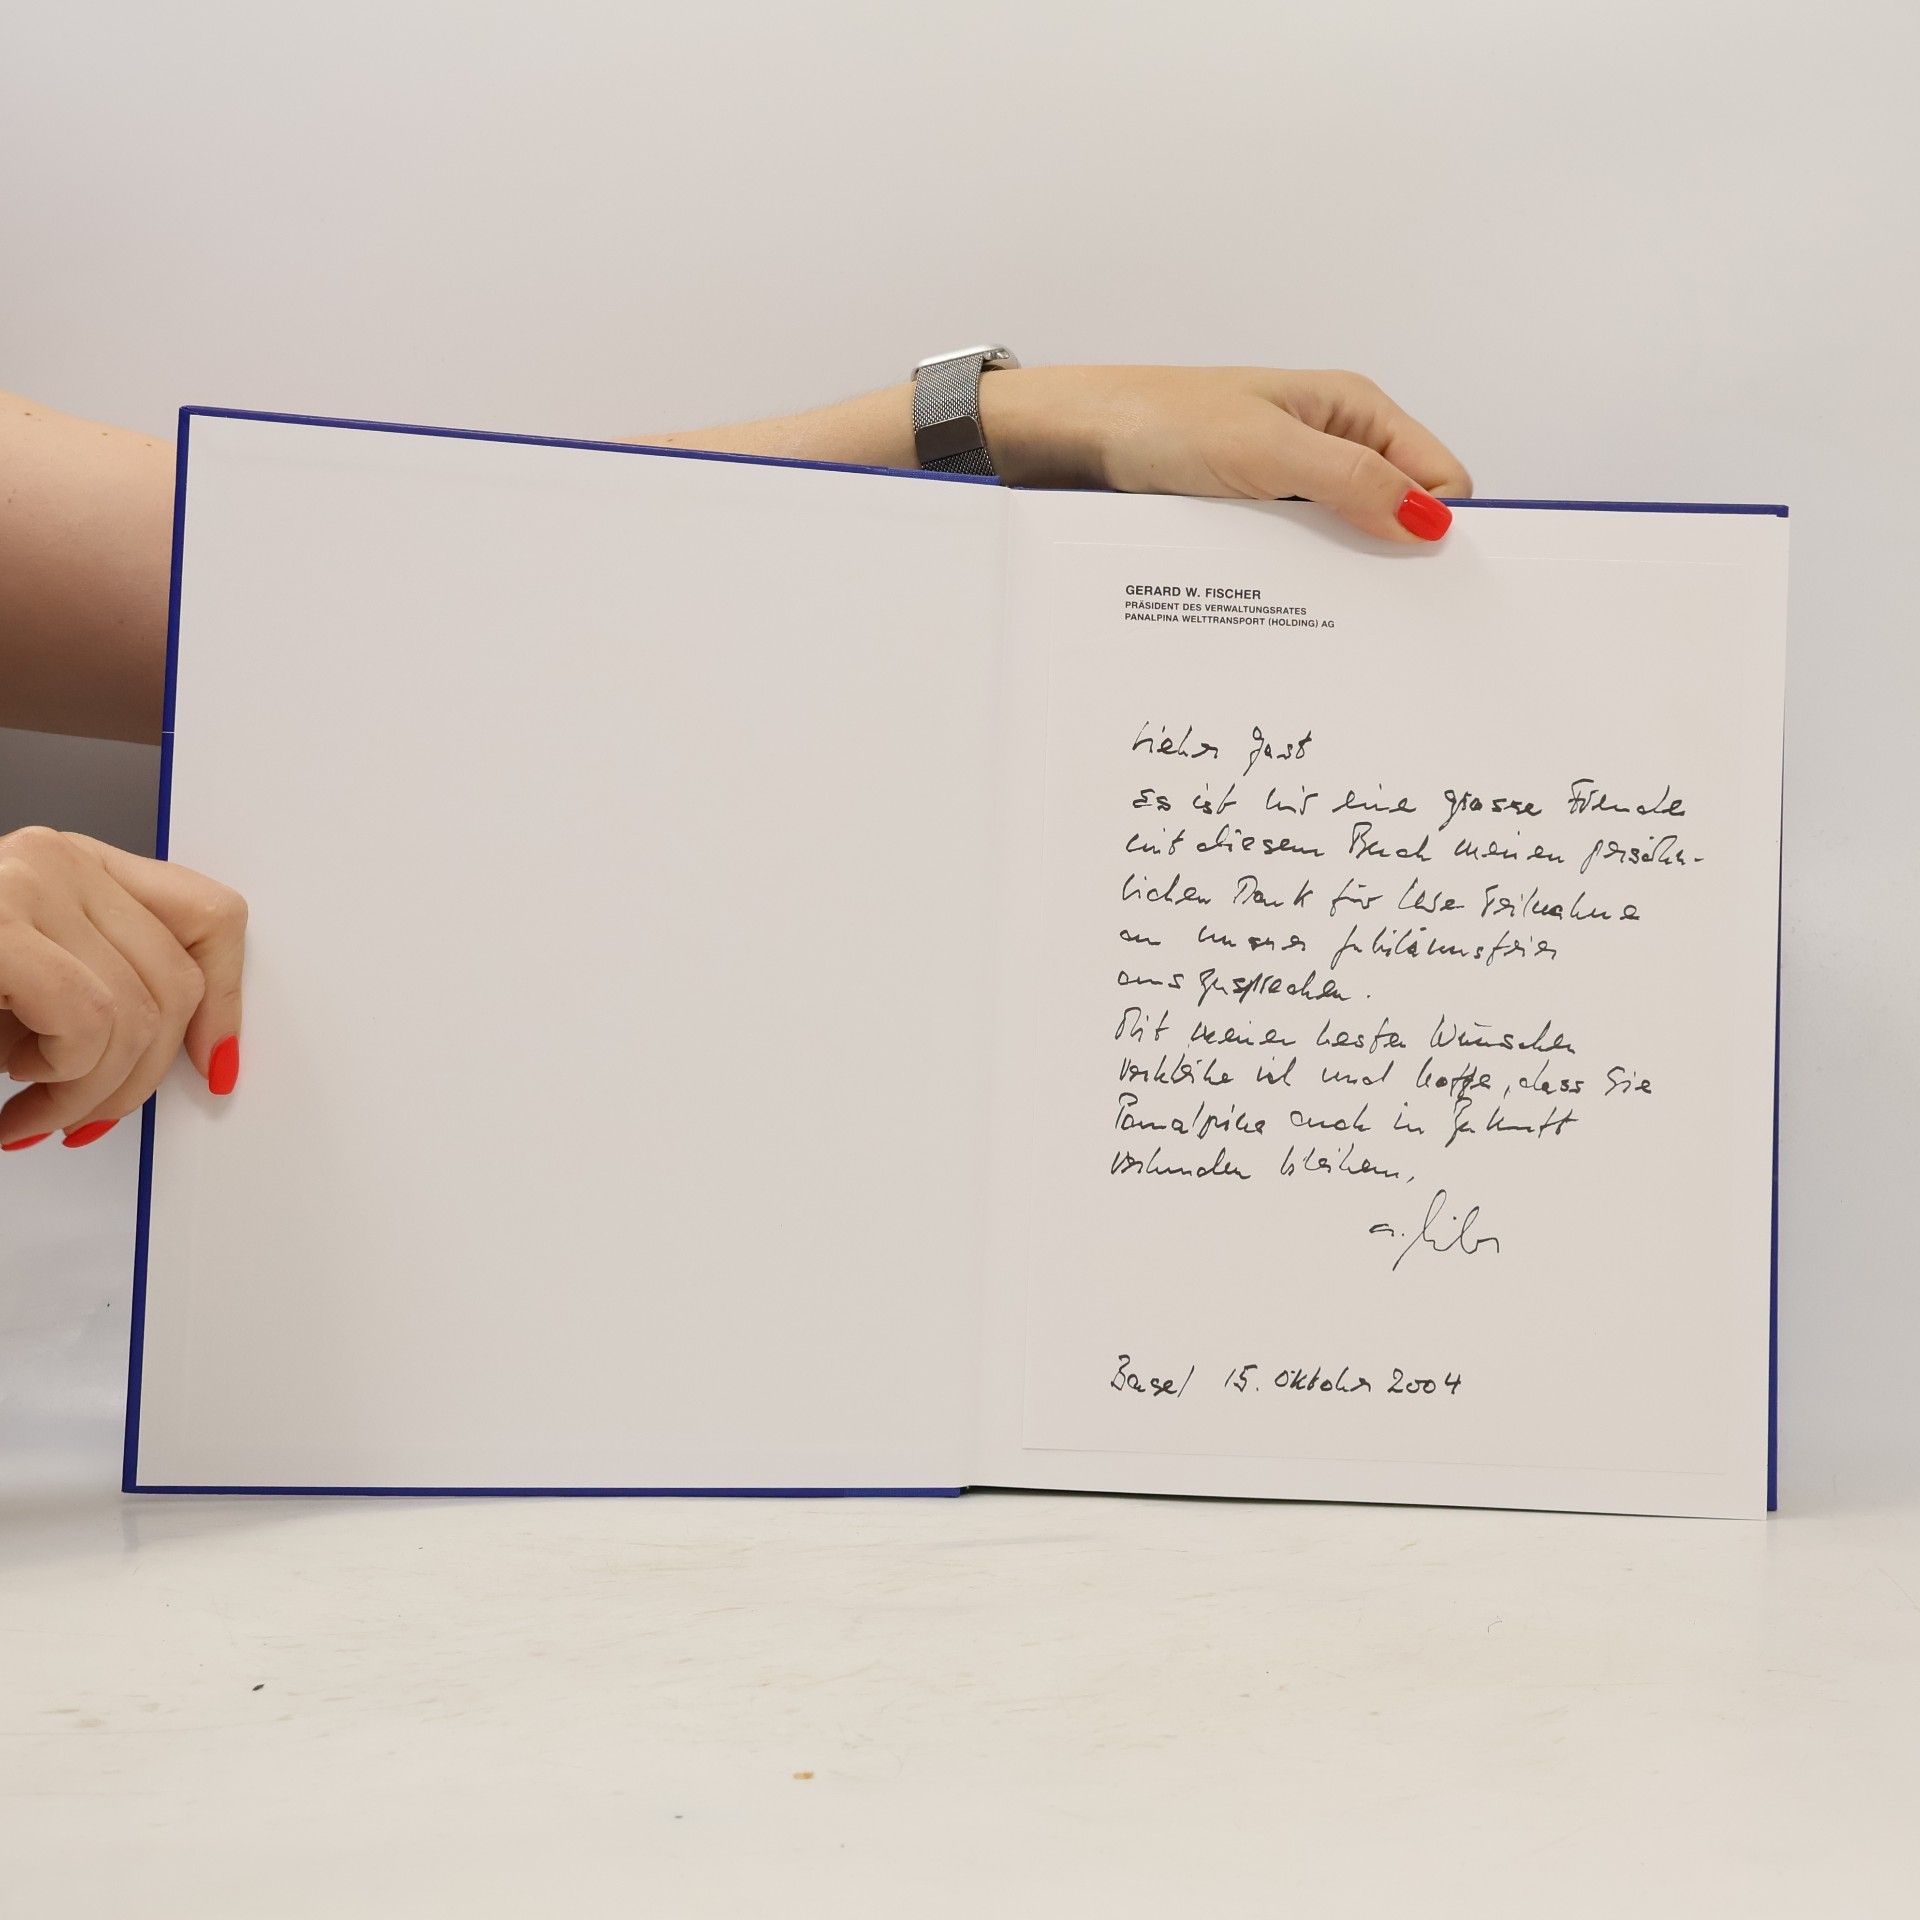 GERARD W. FISCHER
PRÄSIDENT DES VERWALTUNGSRATES
PANALPINA WELTTRANSPORT (HOLDING) AG
Lieber Gast
Es ist mir eine grosse Freude
mit diesem Buch meinen persön-
lichen Dank für Ihre Teilnahme
an unserer Jubiläumsfeier
auszusprechen.
Mit meinen besten Wünschen
verbleibe ich und hoffe, dass Sie
Panalpina auch in Zukunft
verbunden bleiben,
Basel 15. Oktober 2004